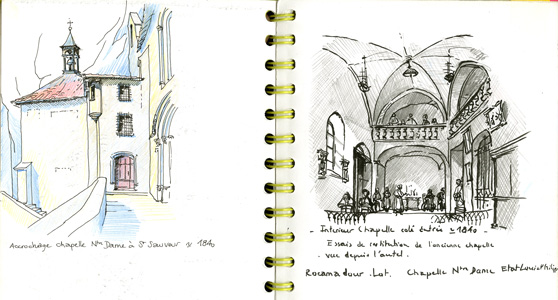 Accrochage chapelle Ntre Dame à St Sauveur ≈ 1840
- Interieur Chapelle coté Entrée ≃ 1840 -
Essais de restitution de l'ancienne chapelle
- vue depuis l'autel -
Rocamadour. Lot. Chapelle Ntre Dame Etat Louis Philip